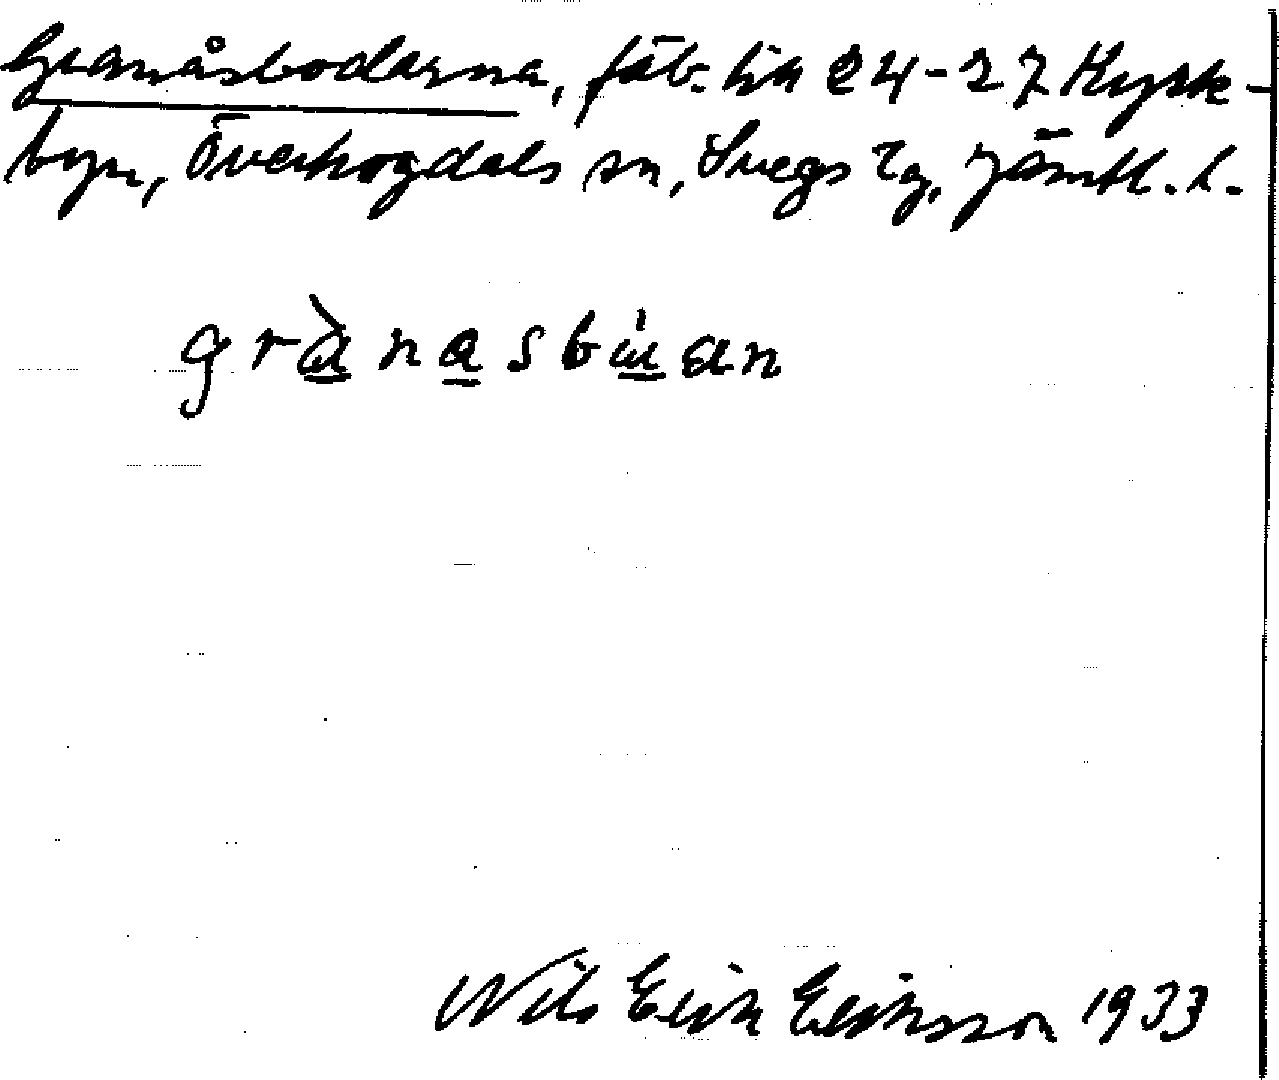 Granåsbodarna, fäb. till 24-27 Kyrk-
byn, Överhogdals sn, Svegs tg, Jämtl. l.
grànasbúan
Nils Erik Eriksson 1933